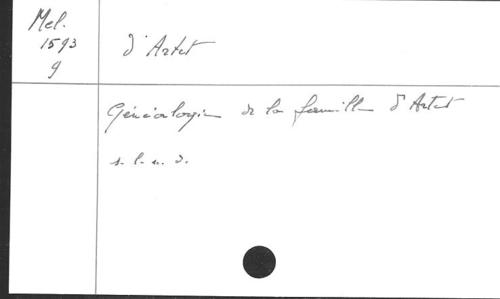 Mel.
1593
9
d'Artet
Généalogie de la famille d'Artet
s.l.n.d.